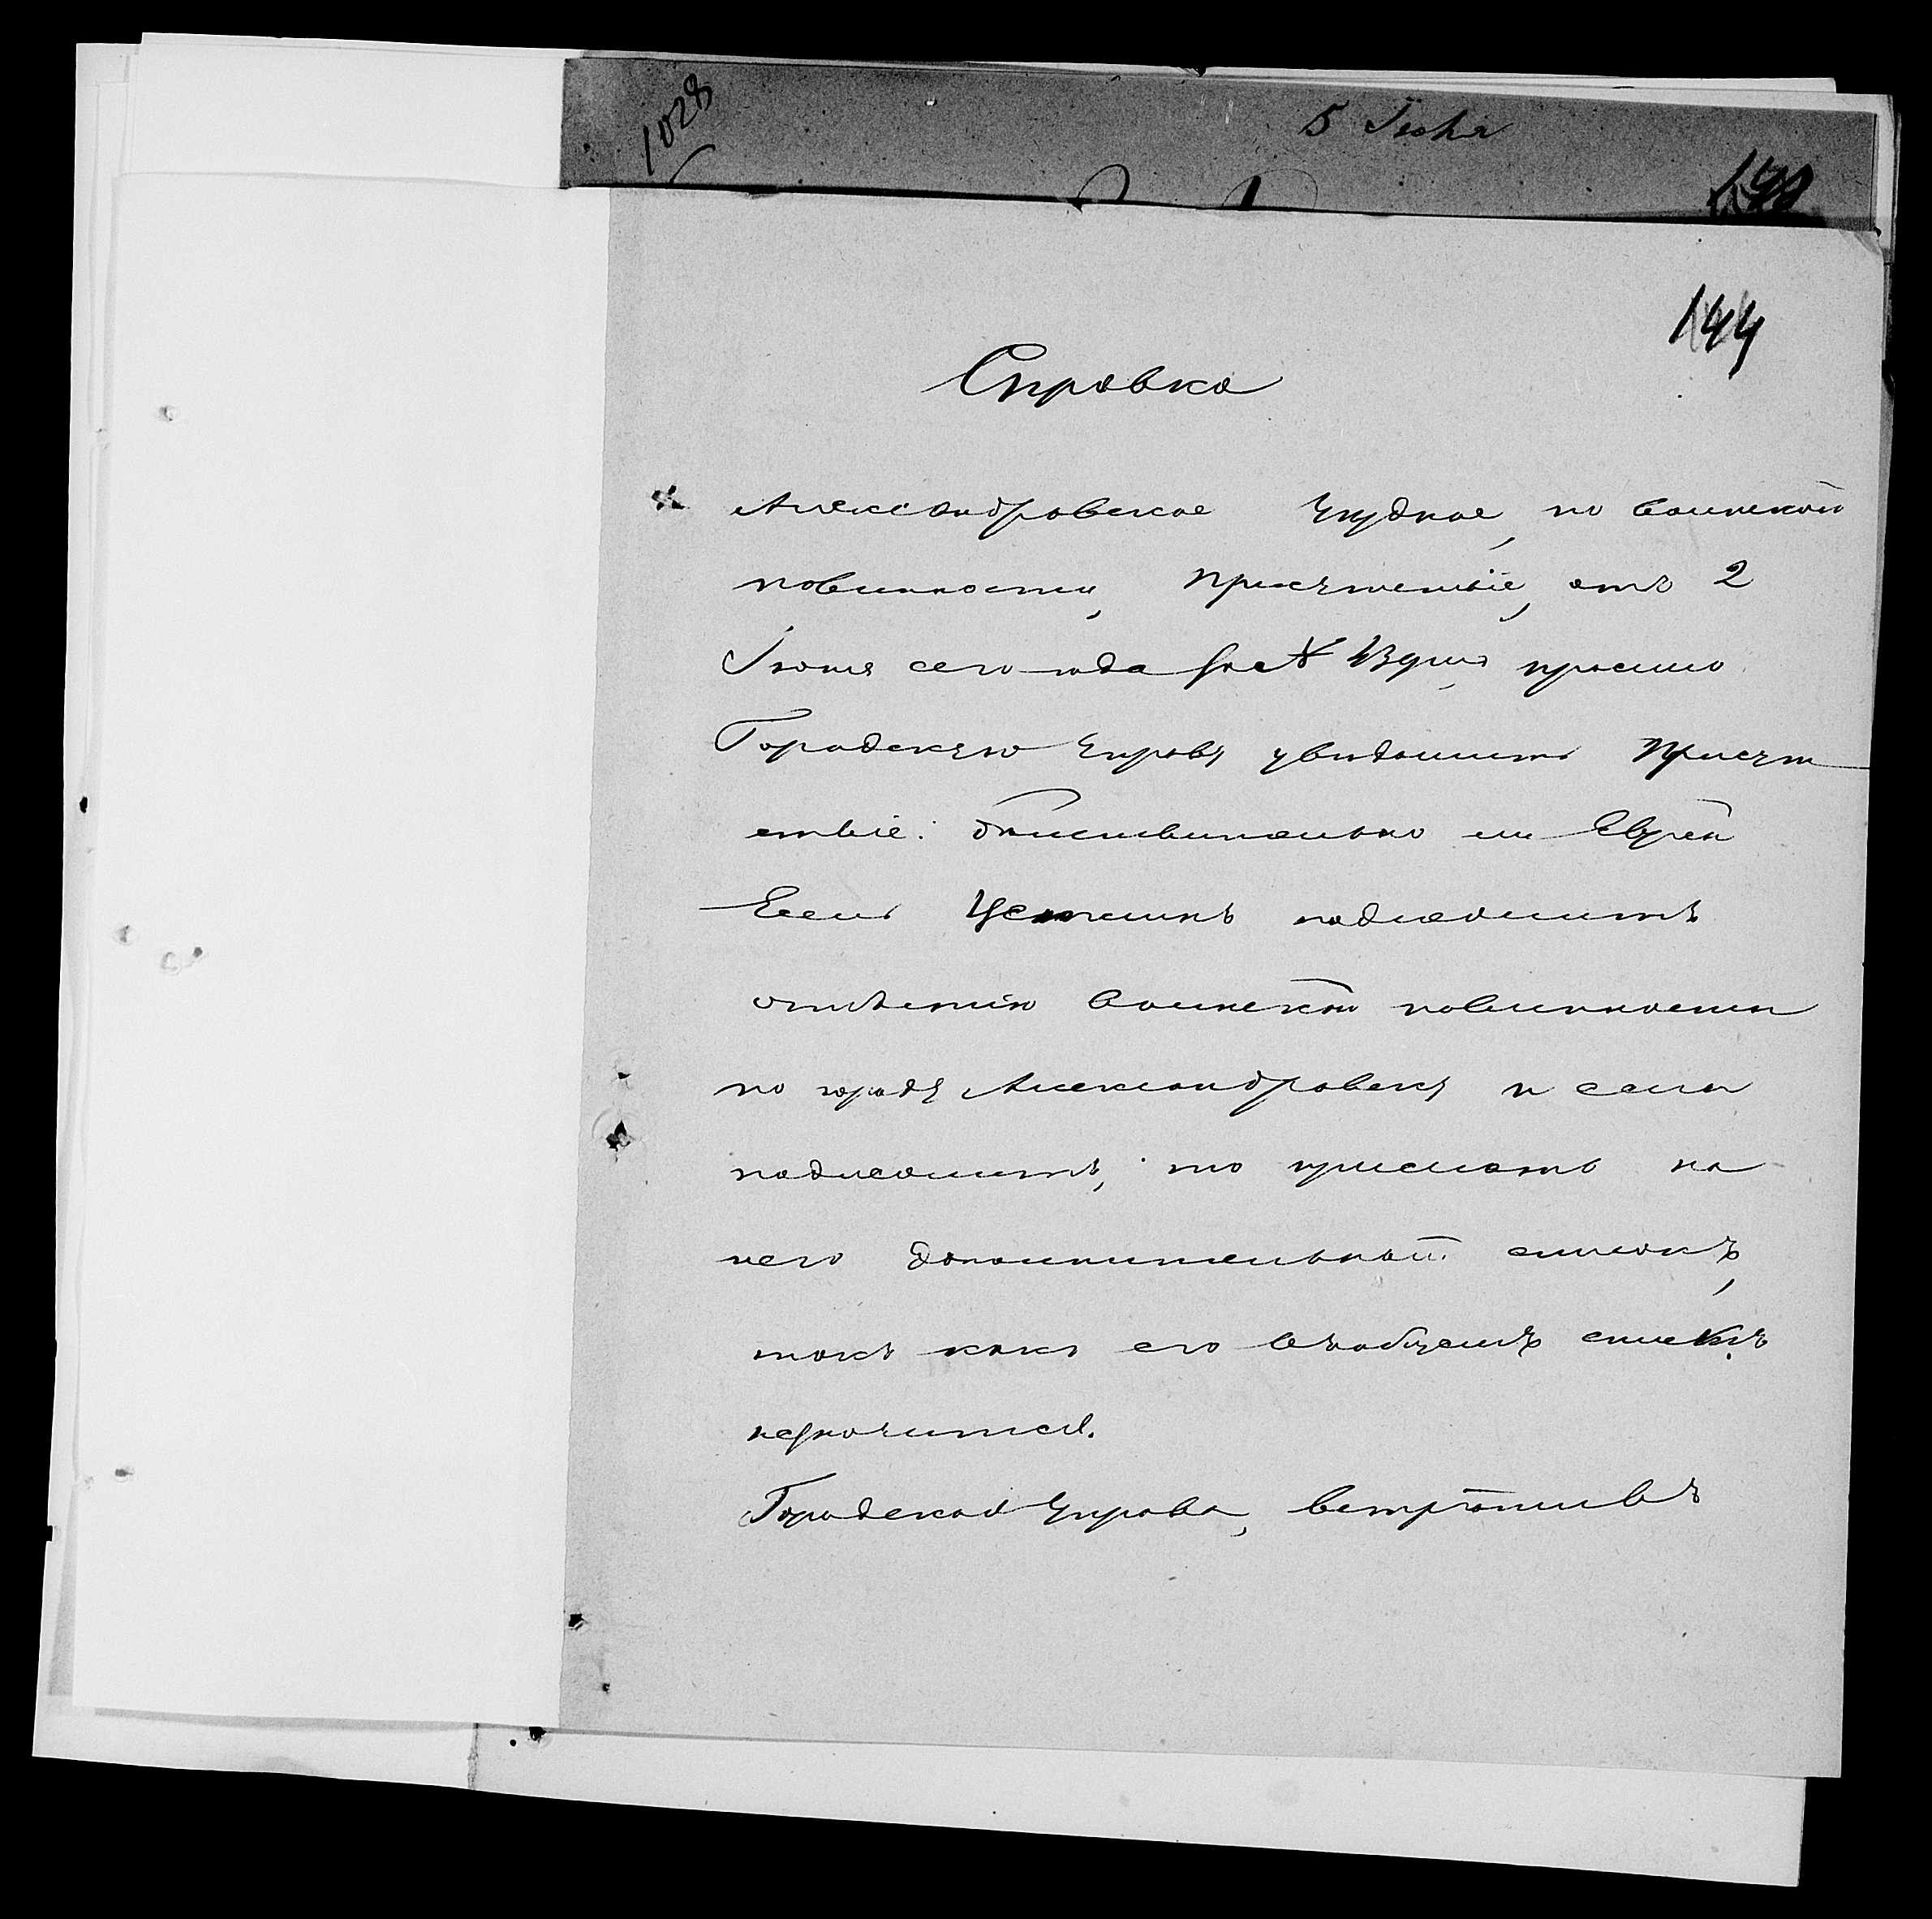 1028
5 Іюня
144
Справка
Александровское Уѣздное, по воинской
повинности, Присутствіе, отъ 2
Іюня сего года за № просило
Городскую Управу увѣдомить Присут
ствіе: дѣйствительно ли Еврей
подлежитъ
отбытію воинской повинности
по городу Александровску и если
подлежитъ, то прислать на
него дополнительный списокъ,
такъ какъ его въ общемъ спискѣ
незначится.
Городская Управа, встрѣтивъ